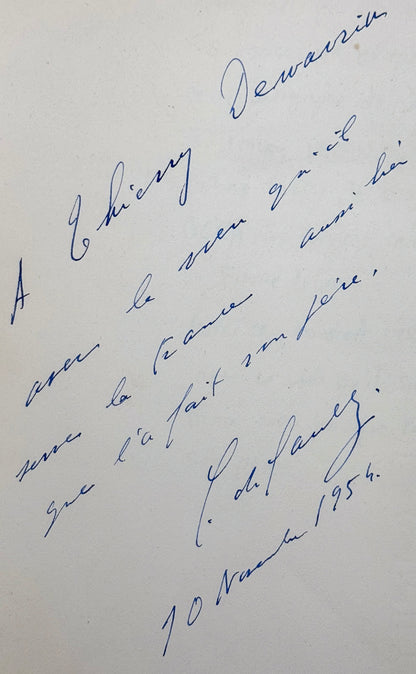 A Thierry Dewavrin
avec le vœu qu'il
serve la France aussi bien
que l'a fait son père.
C. de Gaulle.
10 Novembre 1954.